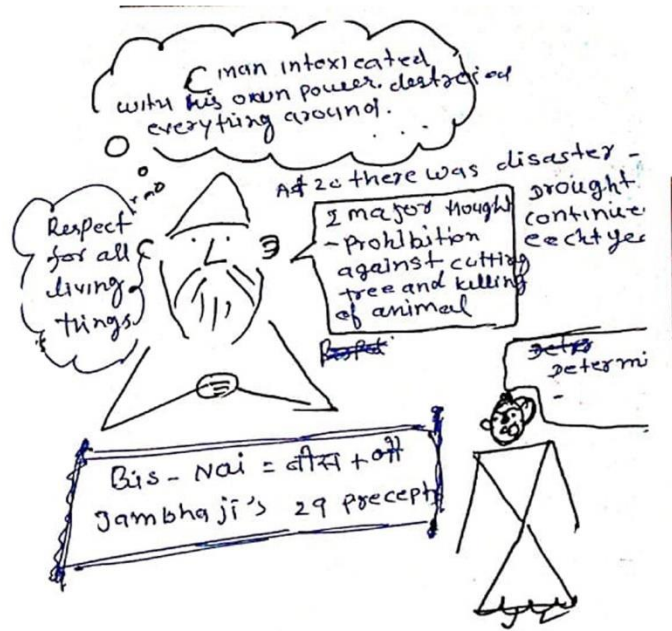 man intexicated
with his own power. destroied
everything around.
Respect
for all
living
things.
there was disaster -
Drought
continue
2 major thought
- Prohibition
against cutting
tree and killing
of animal
Determi
-
Bis - Nai = बीस + नौ
Jambhaji's 29 precept